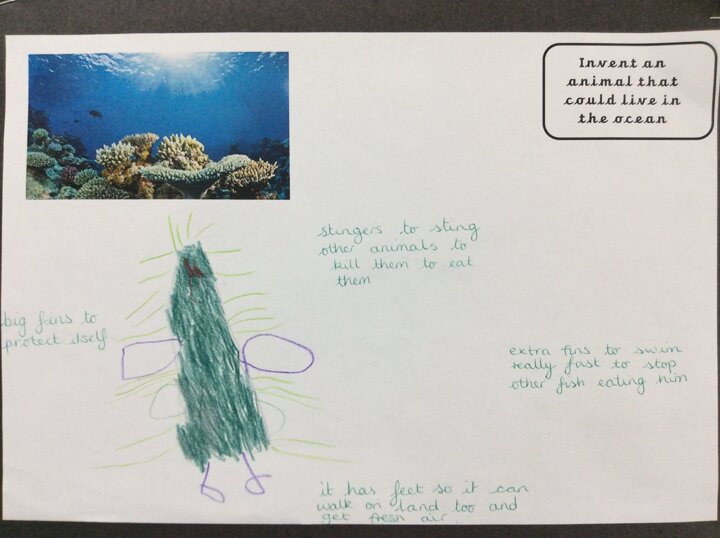 Invent an
animal that
could live in
the ocean
stingers to sting
other animals to
kill them to eat
them
big fins to
protect itself
extra fins to swim
really fast to stop
other fish eating him
it has feet so it can
walk on land too and
get fresh air.